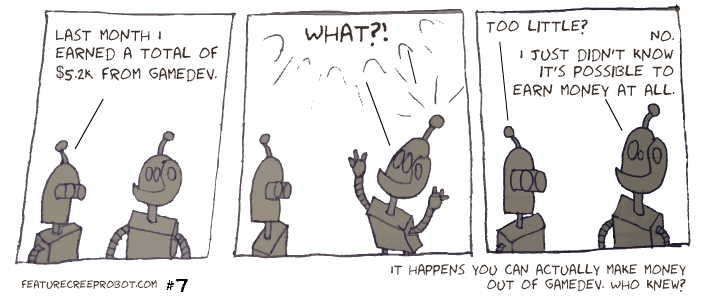 LAST MONTH I
EARNED A TOTAL OF
$5.2K FROM GAMEDEV.
WHAT?!
TOO LITTLE?
NO.
I JUST DIDN'T KNOW
IT'S POSSIBLE TO
EARN MONEY AT ALL.
FEATURECREEPROBOT.COM #7
IT HAPPENS YOU CAN ACTUALLY MAKE MONEY
OUT OF GAMEDEV. WHO KNEW?